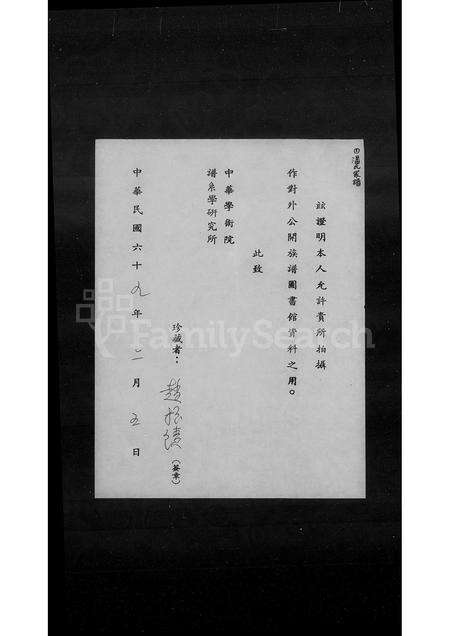 茲證明本人允許貴所拍攝
作對外公開族譜圖書館資料之用。
此致
中華學術院
譜系學研究所
珍藏者：
(簽章)
中華民國六十九年二月五日
FamilySearch